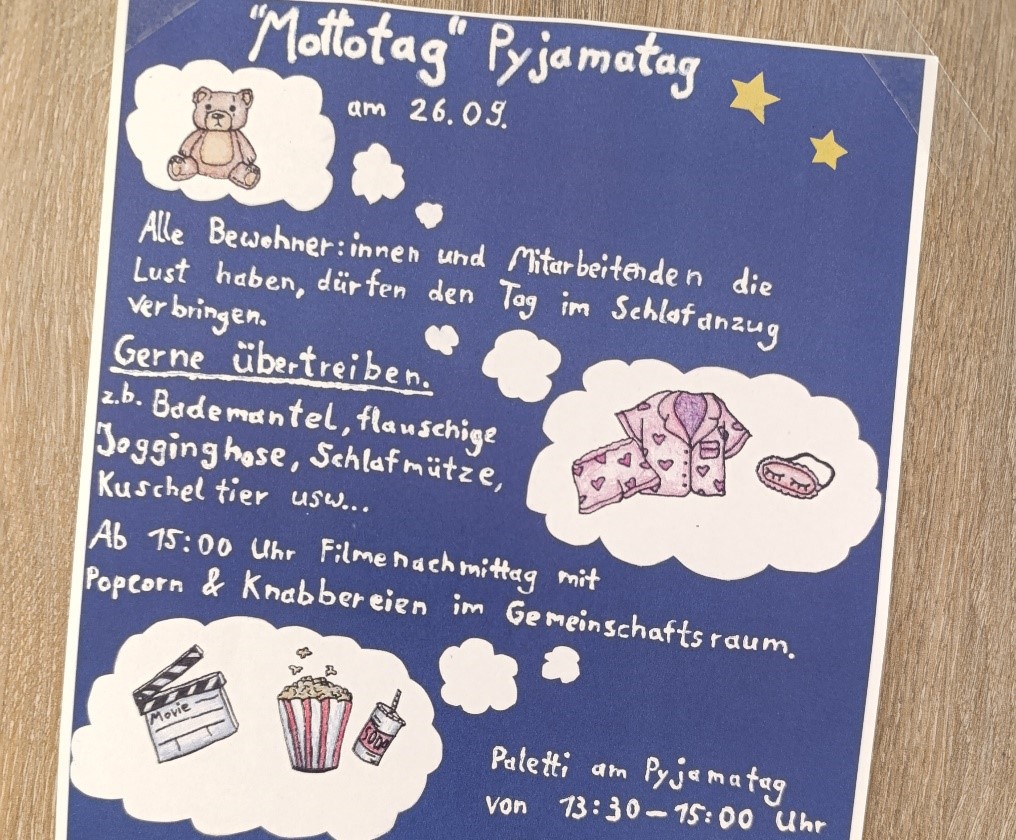 "Mottotag" Pyjamatag
am 26.09.
Alle Bewohner:innen und Mitarbeitenden die
Lust haben, dürfen den Tag im Schlafanzug
verbringen.
Gerne übertreiben.
z.b. Bademantel, flauschige
Jogginghose, Schlafmütze,
Kuscheltier usw...
Ab 15:00 Uhr Filmenachmittag mit
Popcorn & Knabbereien im Gemeinschaftsraum.
Movie
SODA
Paletti am Pyjamatag
von 13:30-15:00 Uhr